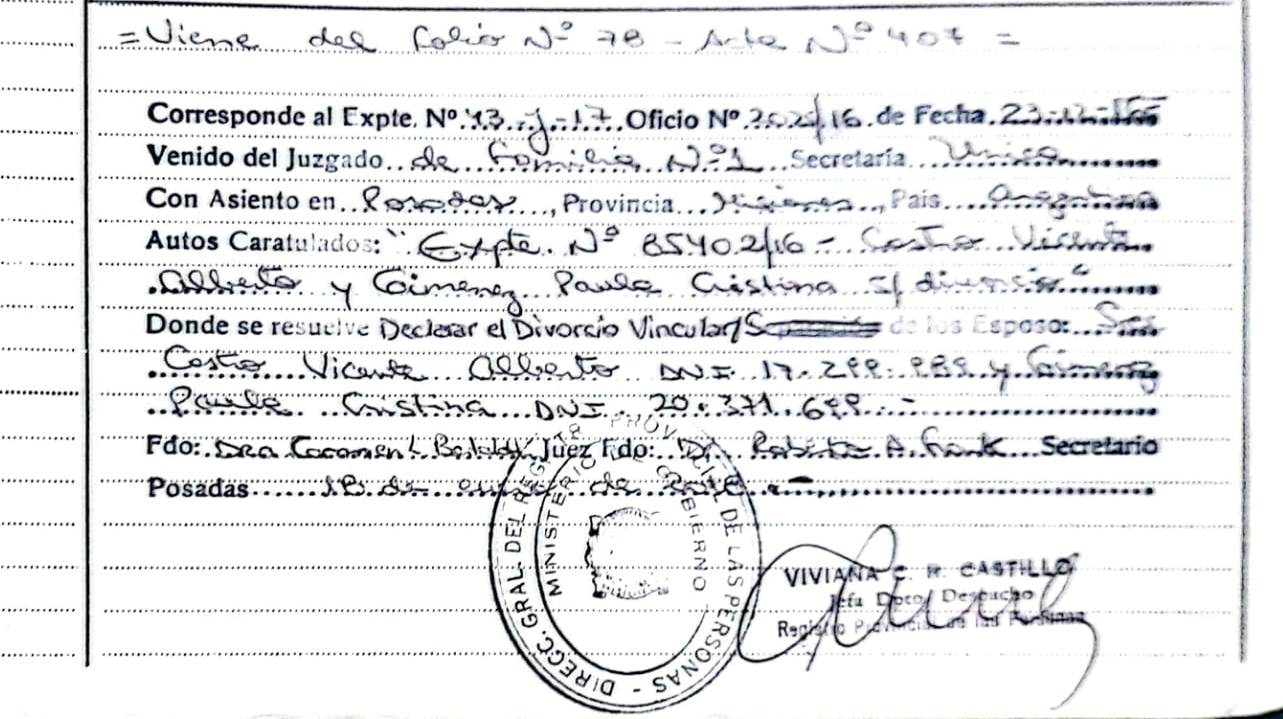 = Viene del folio Nº 78 - Acta Nº 407 =
Corresponde al Expte. Nº 43-J-17 Oficio Nº 2025/16 de Fecha 23-12-
Venido del Juzgado de Familia Nº 1 Secretaría Unica
Con Asiento en Posadas, Provincia Misiones, País Argentina
Autos Caratulados: "Expte. Nº 85402/16 - Castro Vicente
Alberto y Gimenez Paula Cristina s/ divorcio"
Donde se resuelve Declarar el Divorcio Vincular/ de los Esposos: Sres
Castro Vicente Alberto DNI 17.299.989 y Gimenez
Paula Cristina DNI. 20.371.699.-
Fdo: Dra Juez Fdo: Dr. A. Secretario
Posadas 18 de de
DIRECC. GRAL. DEL REGISTR. PROVINCIAL DE LAS PERSONAS
MINISTERIO DE GOBIERNO
VIVIANA C. R. CASTILLO
Jefa Dpto. Despacho
Registro Provincial de las Personas